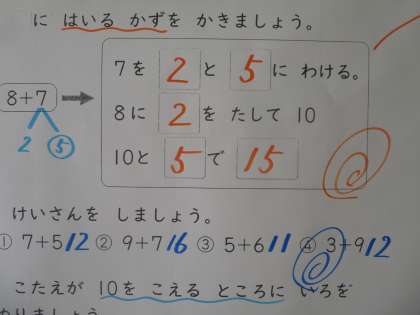 に はいる かずを かきましょう。
7を 2 と 5 に わける。
8+7
8に 2 を たして 10
2 5
10と 5 で 15
けいさんを しましょう。
① 7+5 12 ② 9+7 16 ③ 5+6 11 ④ 3+9 12
こたえが 10を こえる ところに いろを